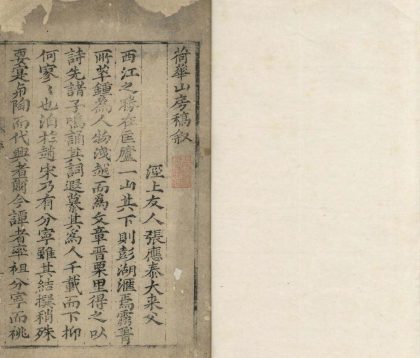 荷華山房稿敘
涇上友人張應泰大來父
西江之勝在匡廬一山其下則彭湖滙焉靈菁
所萃鍾為人物洩越而為文章晉栗里得之以
詩先諸子鳴誦其詞遐慕其為人千載而下抑
何寥寥也洎於趙宋乃有分寧雖其結撰稍殊
要足弟陶而代興者爾今譚者率祖分寧而祧